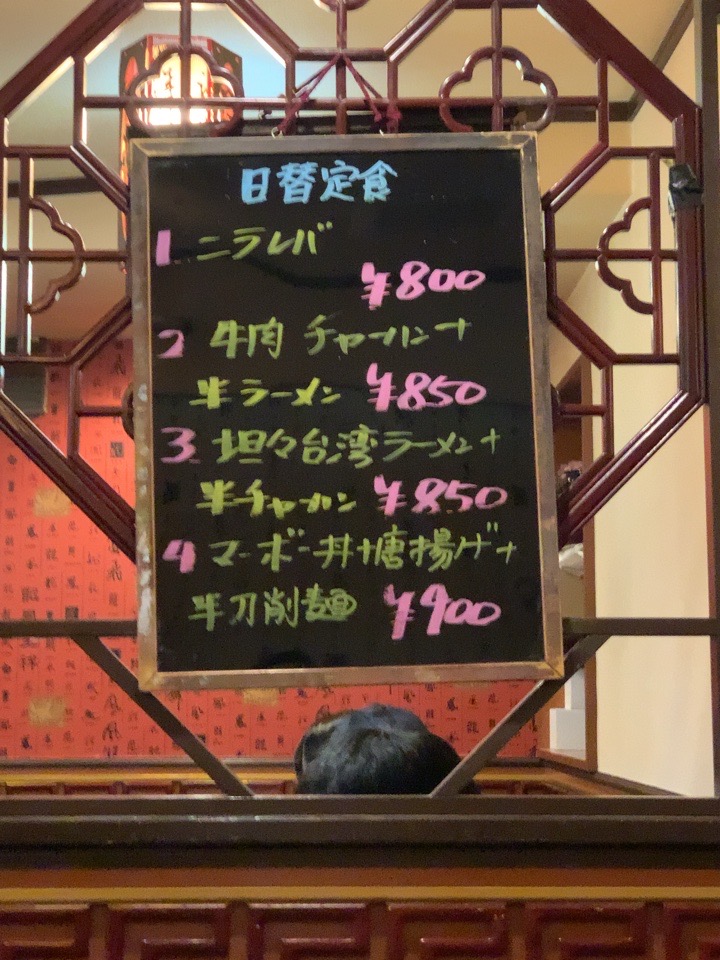 日替定食
1. ニラレバ
¥800
2 牛肉 チャーハン+
半ラーメン ¥850
3. 坦々台湾ラーメン+
半チャーハン ¥850
4 マーボー丼+唐揚げ+
半刀削麺 ¥900